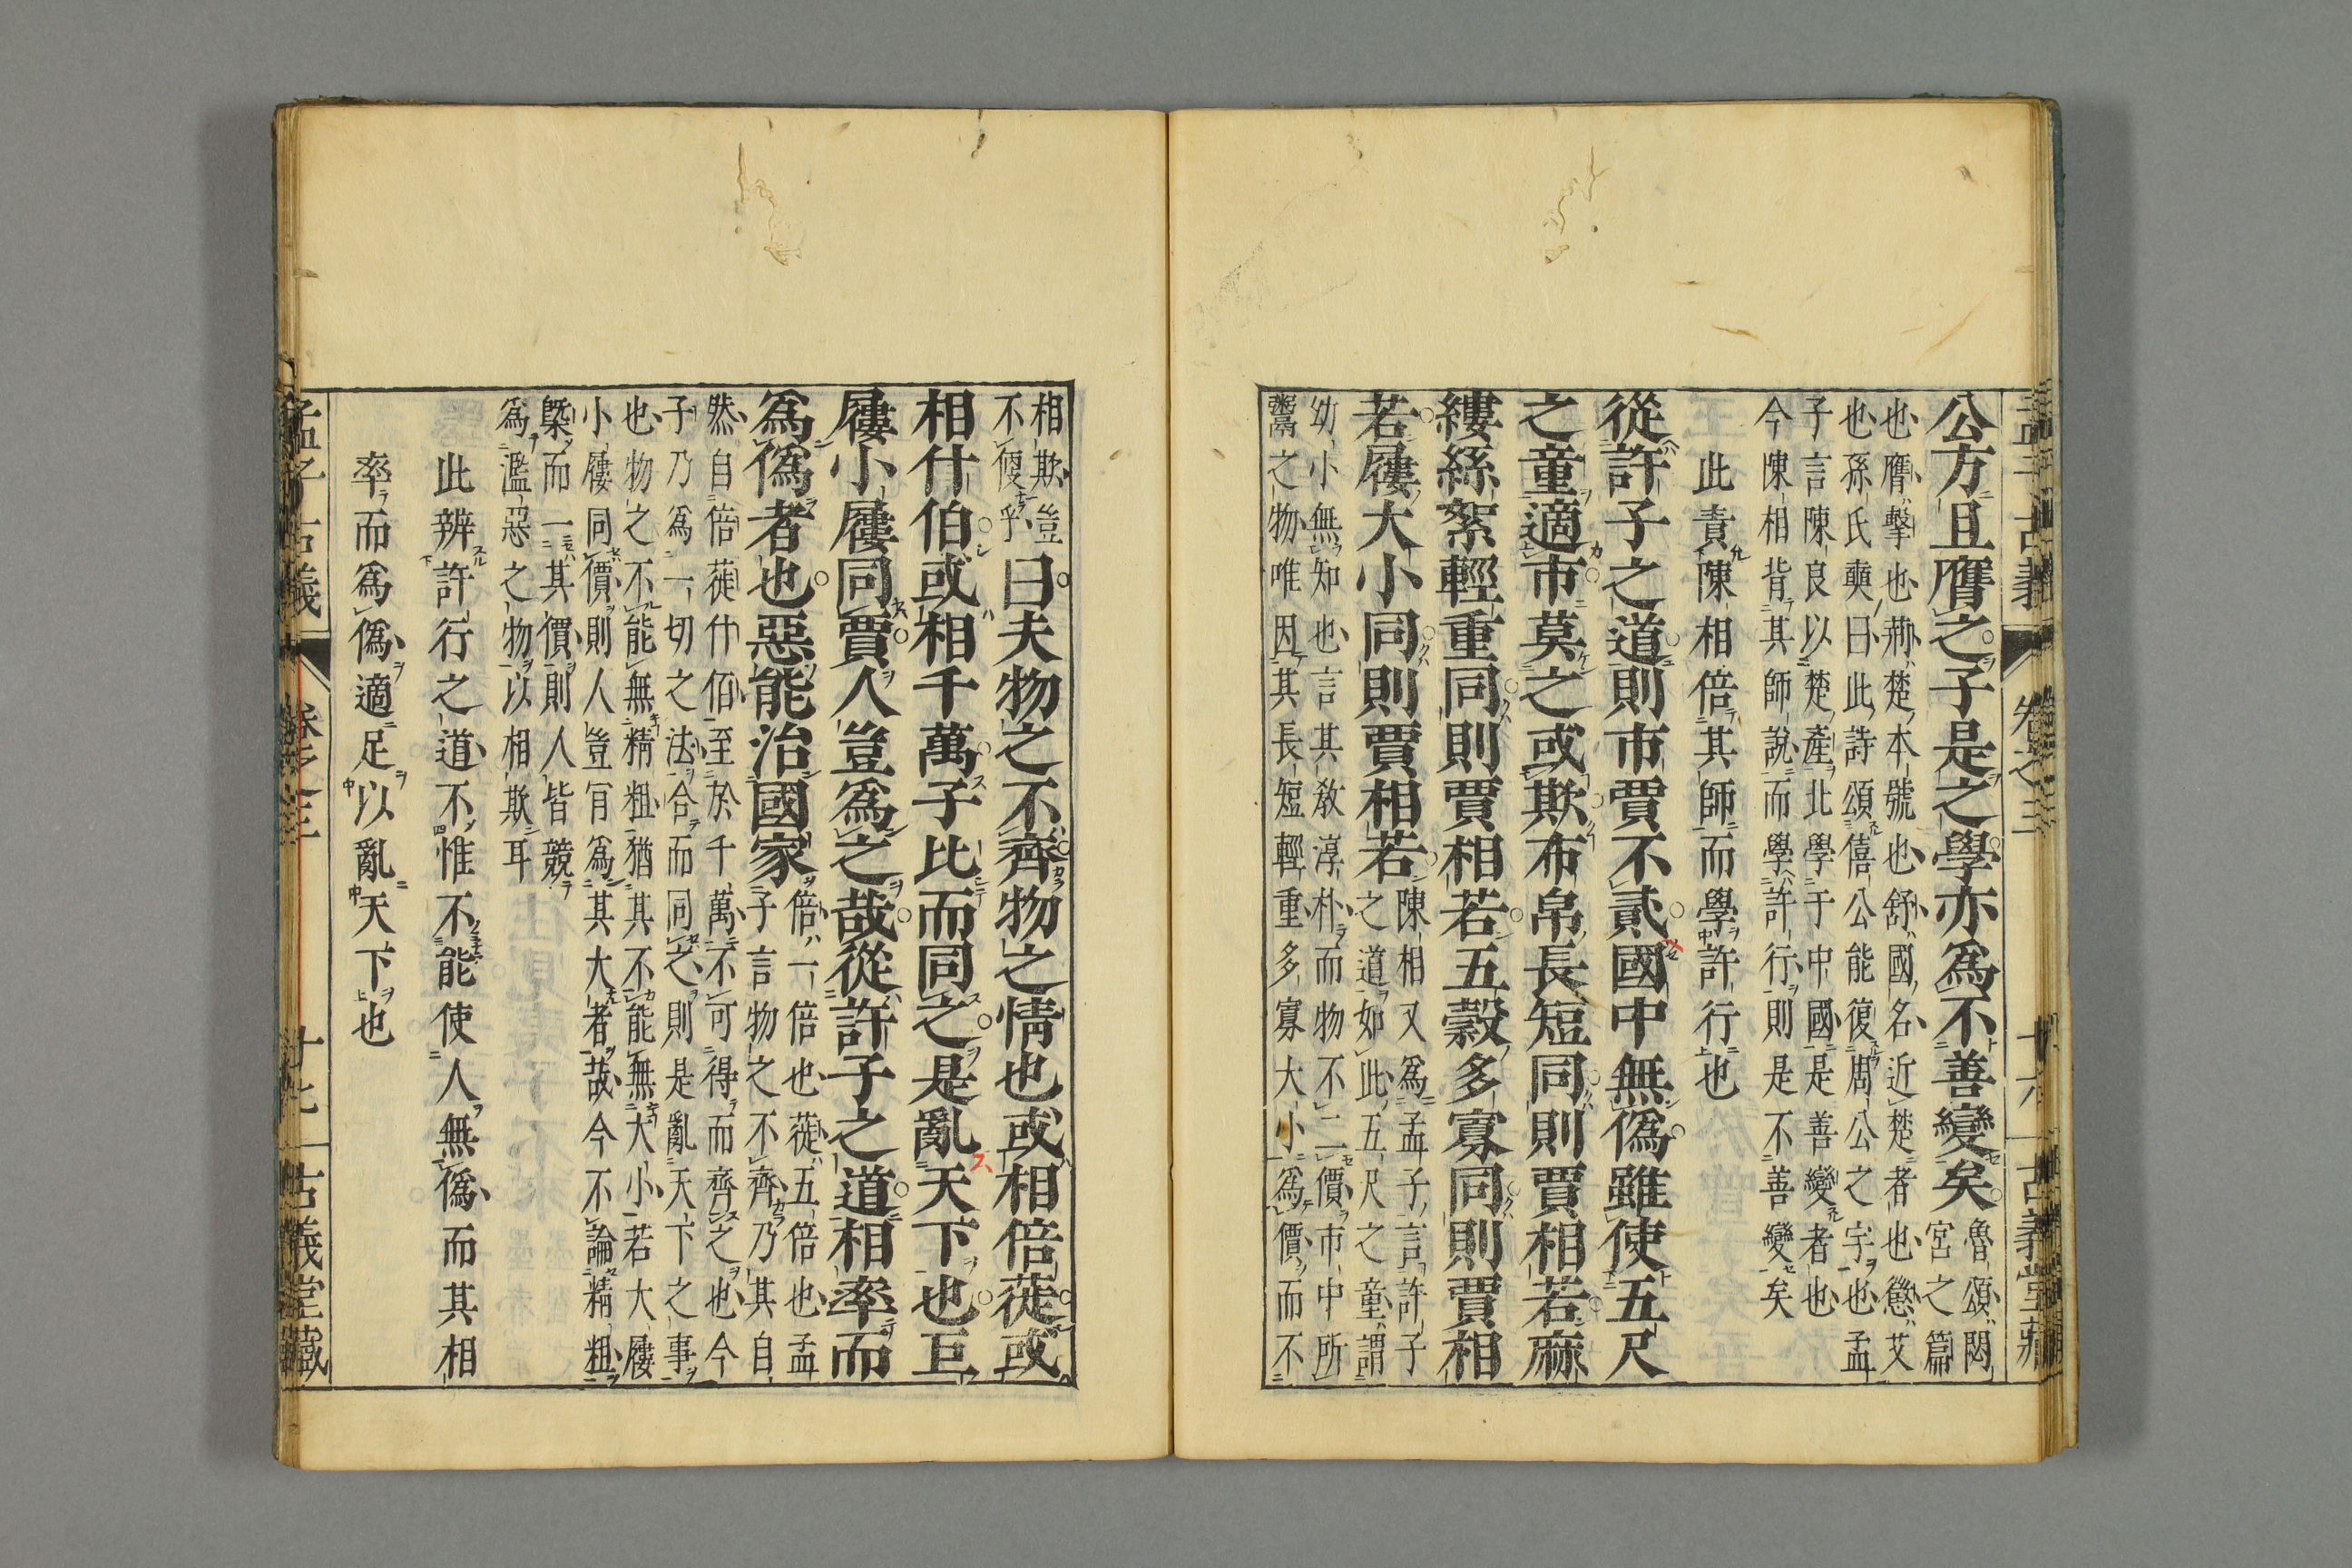 孟子古義 卷之三 十六 古義堂藏
公方且膺之子是之學亦爲不善變矣魯頌閟
宮之篇
也膺擊也荊楚本號也舒國名近楚者也懲艾
也孫氏奭曰此詩頌僖公能復周公之宇也孟
子言陳良以楚產北學于中國是善變者也
今陳相背其師說而學許行則是不善變矣
此責陳相倍其師而學許行也
從許子之道則市賈不貳國中無僞雖使五尺
之童適市莫之或欺布帛長短同則賈相若麻
縷絲絮輕重同則賈相若五穀多寡同則賈相
若屨大小同則賈相若陳相又爲孟子言許子
之道如此五尺之童謂
幼小無知也言其敎淳朴而物不二價市中所
鬻之物唯因其長短輕重多寡大小爲價而不
相欺豈
不便乎曰夫物之不齊物之情也或相倍蓰或
相什伯或相千萬子比而同之是亂天下也巨
屨小屨同賈人豈爲之哉從許子之道相率而
爲僞者也惡能治國家倍一倍也蓰五倍也孟
子言物之不齊乃其自
然自倍蓰什佰至於千萬不可得而齊之也今
子乃爲一切之法合而同之則是亂天下之事
也物之不能無精粗猶其不能無大小若大屨
小屨同價則人豈肯爲其大者哉今不論精粗
槩而一其價則人皆競
爲濫惡之物以相欺耳
此辨許行之道不惟不能使人無僞而其相
率而爲僞適足以亂天下也
孟子古義 卷之三 十七 古義堂藏